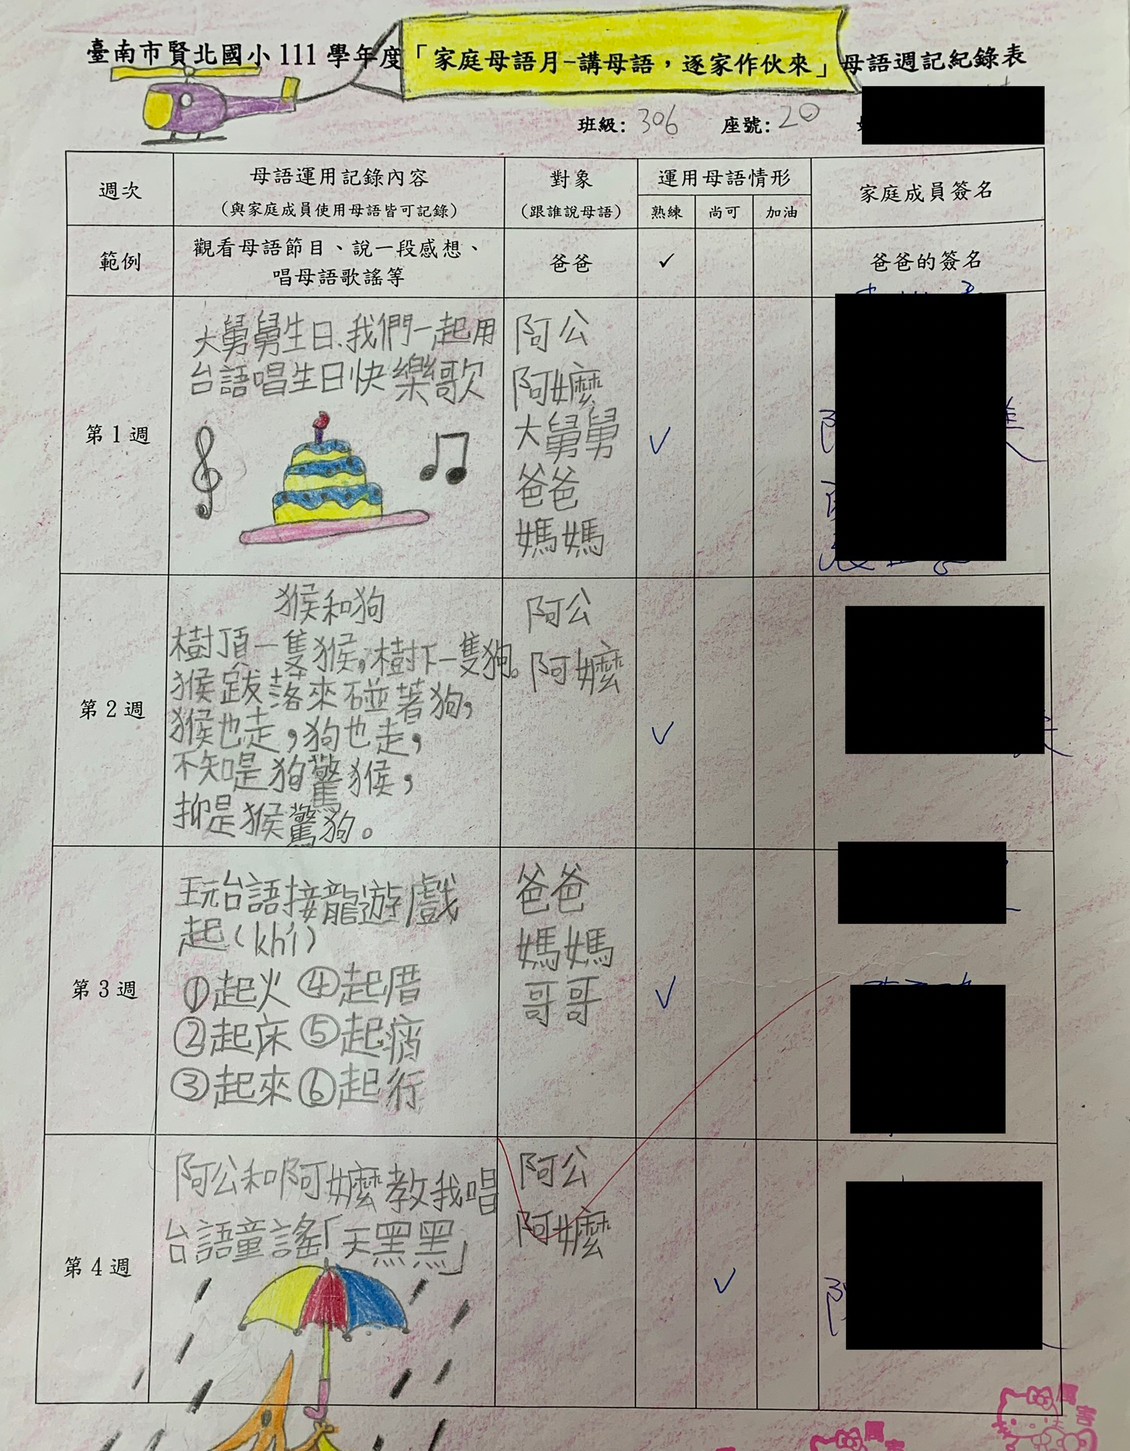 臺南市賢北國小111學年度「家庭母語月-講母語，逐家作伙來」母語週記紀錄表
班級：306 座號：20
週次
母語運用記錄內容
（與家庭成員使用母語皆可記錄）
對象
（跟誰說母語）
運用母語情形
熟練 尚可 加油
家庭成員簽名
範例
觀看母語節目、說一段感想、
唱母語歌謠等
爸爸
✓
爸爸的簽名
第1週
大舅舅生日,我們一起用
台語唱生日快樂歌
阿公
阿嬤
大舅舅
爸爸
媽媽
✓
第2週
猴和狗
樹頂一隻猴,樹下一隻狗。
猴跋落來碰著狗,
猴也走,狗也走,
不知是狗驚猴,
抑是猴驚狗。
阿公
阿嬤
✓
第3週
玩台語接龍遊戲
起(khí)
①起火 ④起厝
②起床 ⑤起痟
③起來 ⑥起行
爸爸
媽媽
哥哥
✓
第4週
阿公和阿嬤教我唱
台語童謠「天黑黑」
阿公
阿嬤
✓
厲害